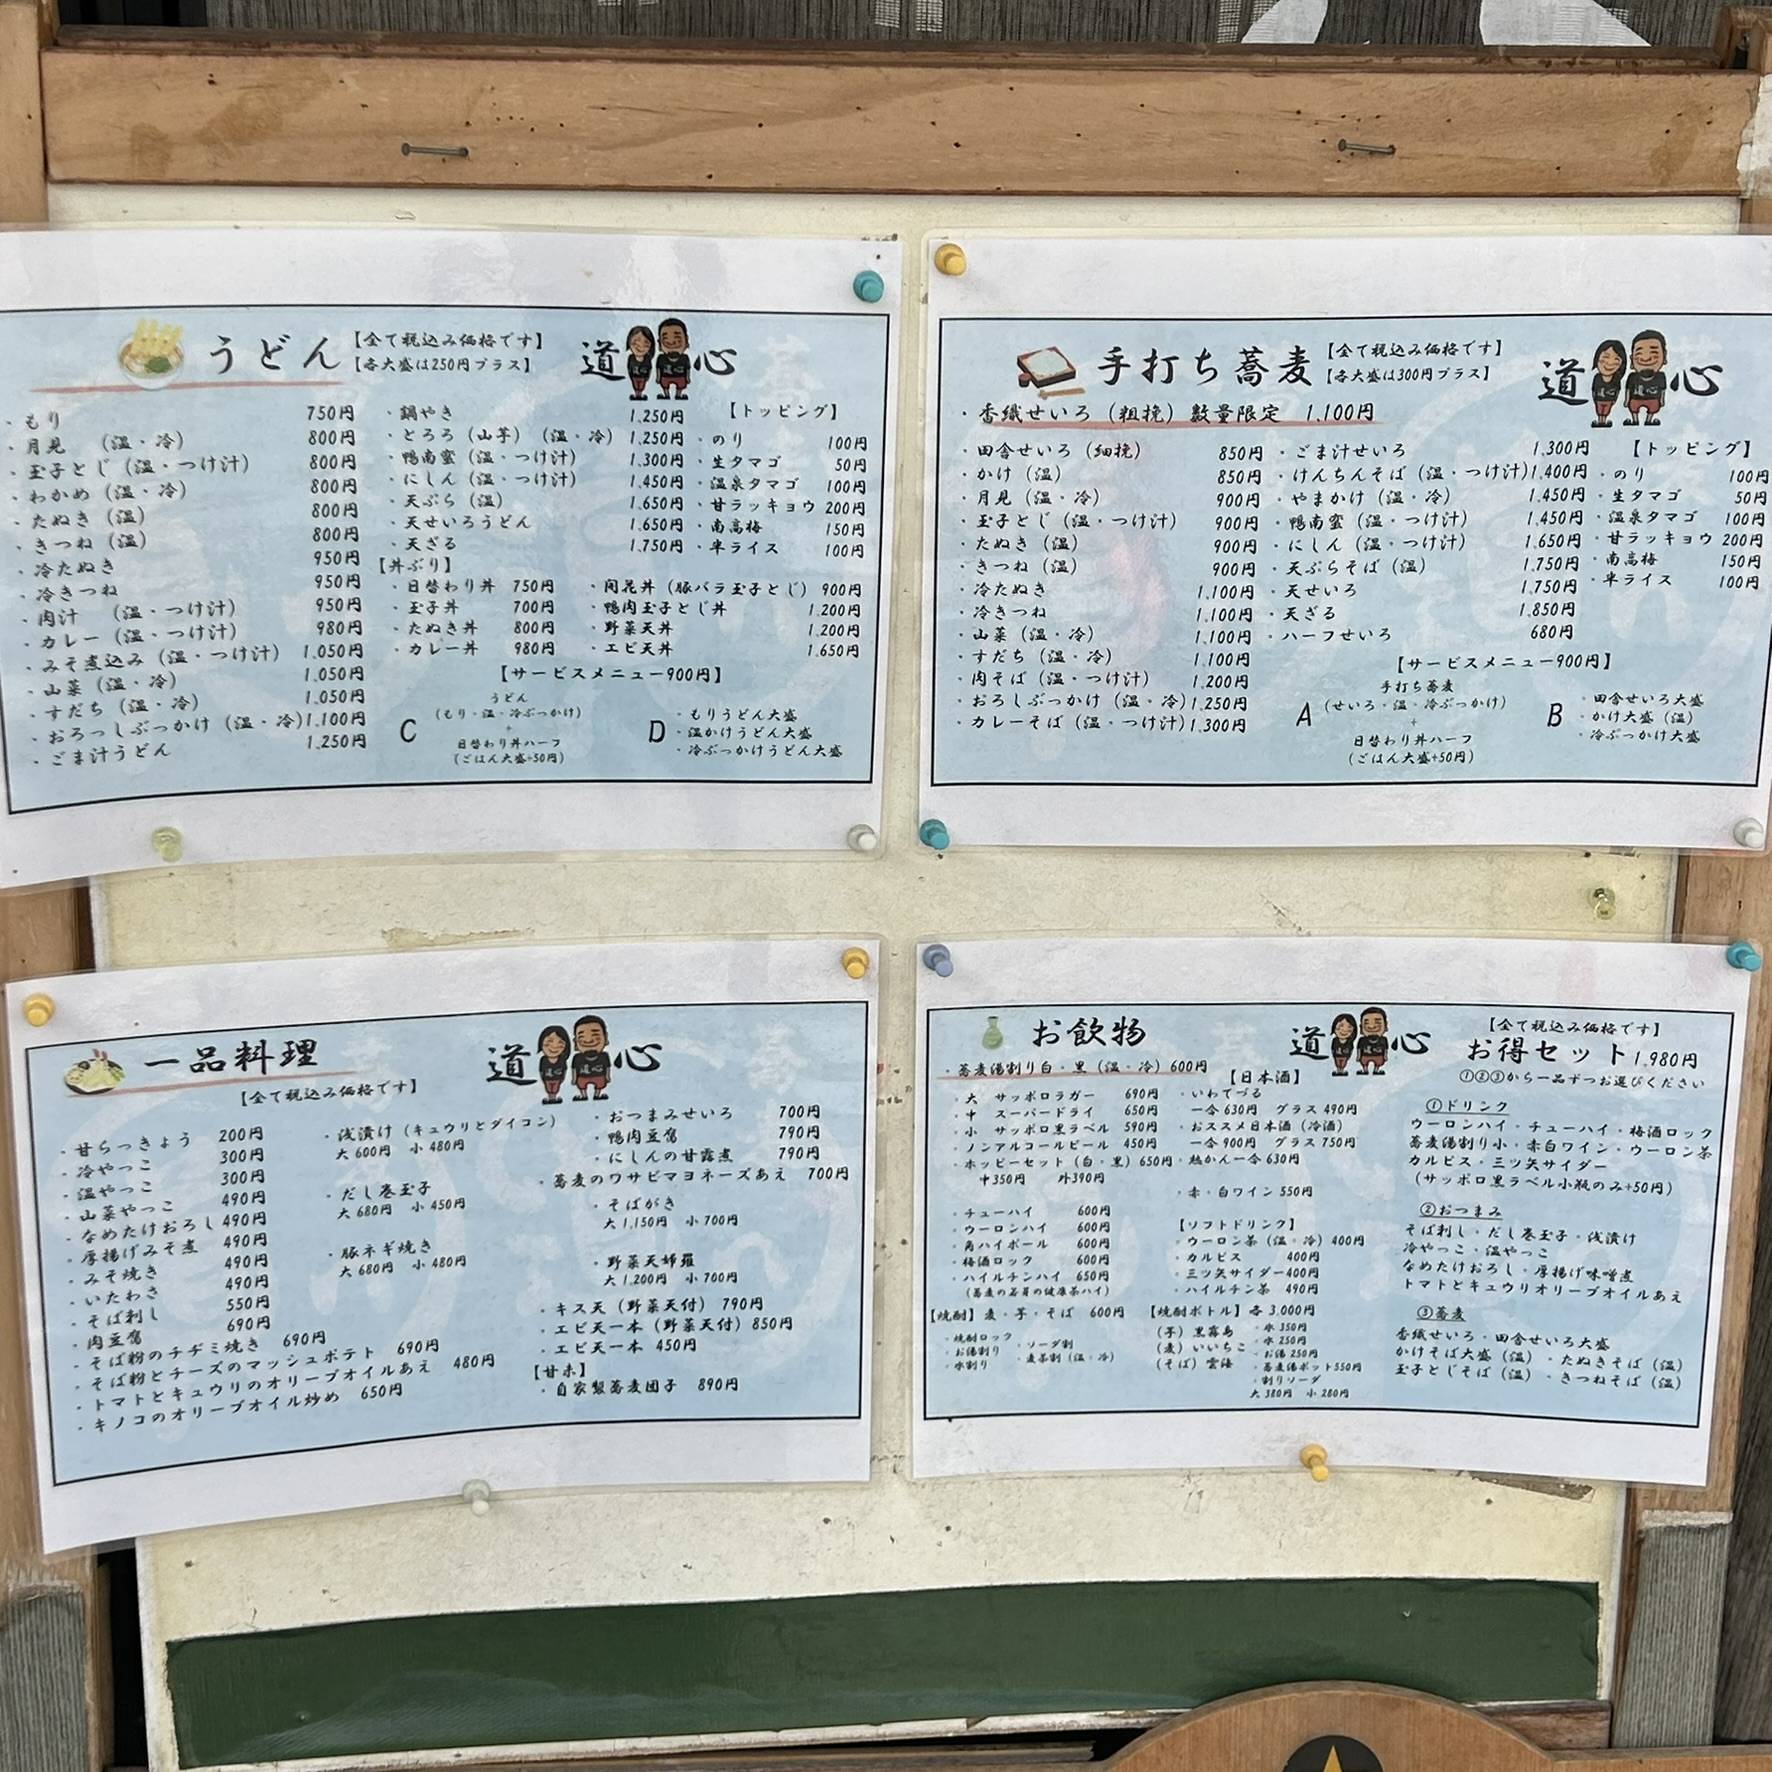 うどん
【全て税込み価格です】
【各大盛は250円プラス】
道心
・もり 750円
・月見 (温・冷) 800円
・玉子とじ (温・つけ汁) 800円
・わかめ (温・冷) 800円
・たぬき (温) 800円
・きつね (温) 800円
・冷たぬき 950円
・冷きつね 950円
・肉汁 (温・つけ汁) 950円
・カレー (温・つけ汁) 980円
・みそ煮込み (温・つけ汁) 1,050円
・山菜 (温・冷) 1,050円
・すだち (温・冷) 1,050円
・おろっしぶっかけ (温・冷) 1,100円
・ごま汁うどん 1,250円
・鍋やき 1,250円
・とろろ (山芋) (温・冷) 1,250円
・鴨南蜜 (温・つけ汁) 1,300円
・にしん (温・つけ汁) 1,450円
・天ぷら (温) 1,650円
・天せいろうどん 1,650円
・天ざる 1,750円
【トッピング】
・のり 100円
・生タマゴ 50円
・温泉タマゴ 100円
・甘ラッキョウ 200円
・南高梅 150円
・半ライス 100円
【丼ぶり】
・日替わり丼 750円
・玉子丼 700円
・たぬき丼 800円
・カレー丼 980円
・開花丼 (豚バラ玉子とじ) 900円
・鴨肉玉子とじ丼 1,200円
・野菜天丼 1,200円
・エビ天丼 1,650円
【サービスメニュー900円】
C
うどん
(もり・温・冷ぶっかけ)
+
日替わり丼ハーフ
(ごはん大盛+50円)
D
・もりうどん大盛
・温かけうどん大盛
・冷ぶっかけうどん大盛
手打ち蕎麦
【全て税込み価格です】
【各大盛は300円プラス】
道心
・香織せいろ (粗挽) 数量限定 1,100円
・田舎せいろ (細挽) 850円
・かけ (温) 850円
・月見 (温・冷) 900円
・玉子とじ (温・つけ汁) 900円
・たぬき (温) 900円
・きつね (温) 900円
・冷たぬき 1,100円
・冷きつね 1,100円
・山菜 (温・冷) 1,100円
・すだち (温・冷) 1,100円
・肉そば (温・つけ汁) 1,200円
・おろしぶっかけ (温・冷) 1,250円
・カレーそば (温・つけ汁) 1,300円
・ごま汁せいろ 1,300円
・けんちんそば (温・つけ汁) 1,400円
・やまかけ (温・冷) 1,450円
・鴨南蜜 (温・つけ汁) 1,450円
・にしん (温・つけ汁) 1,650円
・天ぷらそば (温) 1,750円
・天せいろ 1,750円
・天ざる 1,850円
・ハーフせいろ 680円
【トッピング】
・のり 100円
・生タマゴ 50円
・温泉タマゴ 100円
・甘ラッキョウ 200円
・南高梅 150円
・半ライス 100円
【サービスメニュー900円】
A
手打ち蕎麦
(せいろ・温・冷ぶっかけ)
+
日替わり丼ハーフ
(ごはん大盛+50円)
B
・田舎せいろ大盛
・かけ大盛 (温)
・冷ぶっかけ大盛
一品料理
【全て税込み価格です】
道心
・甘らっきょう 200円
・冷やっこ 300円
・温やっこ 300円
・山菜やっこ 490円
・なめたけおろし 490円
・厚揚げみそ煮 490円
・みそ焼き 490円
・いたわさ 490円
・そば刺し 550円
・肉豆腐 690円
・そば粉のチヂミ焼き 690円
・そば粉とチーズのマッシュポテト 690円
・トマトとキュウリのオリーブオイルあえ 480円
・キノコのオリーブオイル炒め 650円
・浅漬け (キュウリとダイコン)
大 600円 小 480円
・だし巻玉子
大 680円 小 450円
・豚ネギ焼き
大 680円 小 480円
・おつまみせいろ 700円
・鴨肉豆腐 790円
・にしんの甘露煮 790円
・蕎麦のワサビマヨネーズあえ 700円
・そばがき
大 1,150円 小 700円
・野菜天婦羅
大 1,200円 小 700円
・キス天 (野菜天付) 790円
・エビ天一本 (野菜天付) 850円
・エビ天一本 450円
【甘未】
・自家製蕎麦団子 890円
お飲物
道心
・蕎麦湯割り白・黒 (温・冷) 600円
・大 サッポロラガー 690円
・中 スーパードライ 650円
・小 サッポロ黒ラベル 590円
・ノンアルコールビール 450円
・ホッピーセット (白・黒) 650円
中350円 外390円
・チューハイ 600円
・ウーロンハイ 600円
・角ハイボール 600円
・梅酒ロック 600円
・ハイルチンハイ 650円
(蕎麦の若芽の健康茶ハイ)
【焼酎】 麦・芋・そば 600円
・焼酎ロック
・お湯割り
・水割り
・ソーダ割
・麦茶割 (温・冷)
【日本酒】
・いわてづる
一合 630円 グラス 490円
・おススメ日本酒 (冷酒)
一合 900円 グラス 750円
・熱かん一合 630円
・赤・白ワイン 550円
【ソフトドリンク】
・ウーロン茶 (温・冷) 400円
・カルピス 400円
・三ツ矢サイダー 400円
・ハイルチン茶 490円
【焼酎ボトル】 各 3,000円
(芋) 黒霧島
(麦) いいちこ
(そば) 雲海
・氷 350円
・水 250円
・お湯 250円
・蕎麦湯ポット550円
・割りソーダ
大 380円 小 280円
【全て税込み価格です】
お得セット 1,980円
①②③から一品ずつお選びください
①ドリンク
ウーロンハイ・チューハイ・梅酒ロック
蕎麦湯割り小・赤白ワイン・ウーロン茶
カルピス・三ツ矢サイダー
(サッポロ黒ラベル小瓶のみ+50円)
②おつまみ
そば刺し・だし巻玉子・浅漬け
冷やっこ・温やっこ
なめたけおろし・厚揚げ味噌煮
トマトとキュウリオリーブオイルあえ
③蕎麦
香織せいろ・田舎せいろ大盛
かけそば大盛 (温)・たぬきそば (温)
玉子とじそば (温)・きつねそば (温)